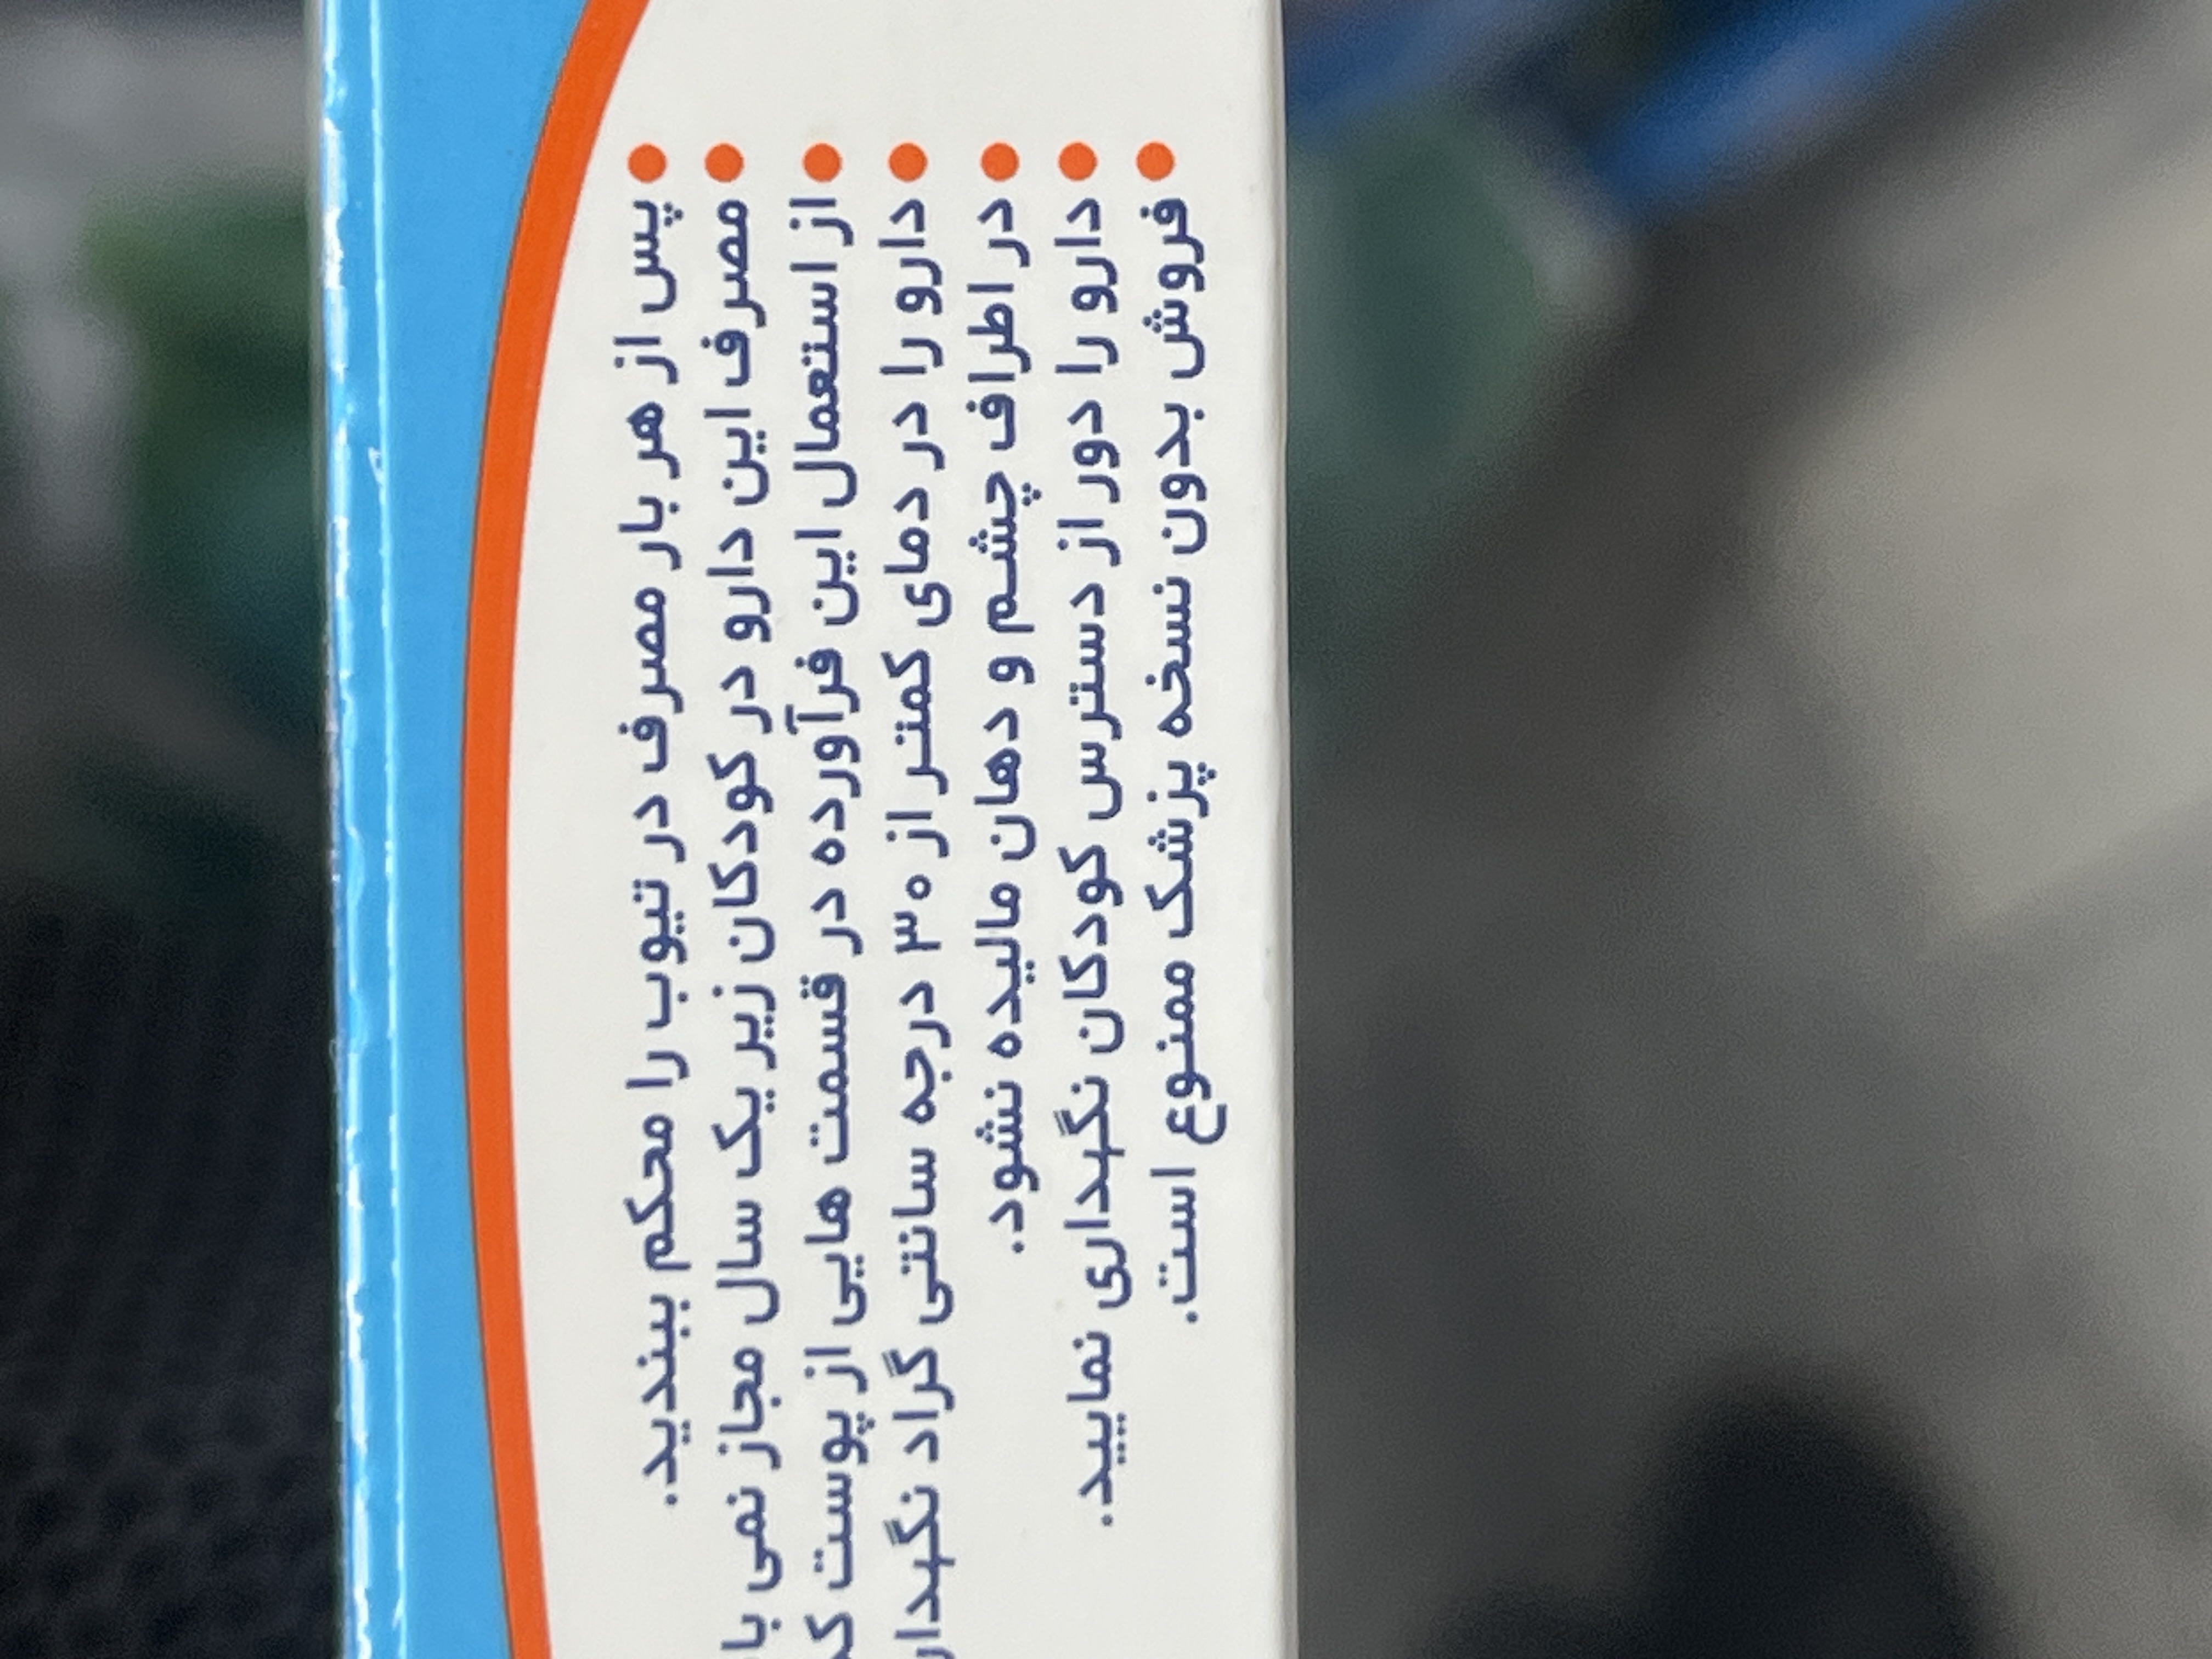 پس از هر بار مصرف در تیوب را محکم ببندید.
مصرف این دارو در کودکان زیر یک سال مجاز نمی
از استعمال این فرآورده در قسمت هایی از پوست
دارو را در دمای کمتر از ۳۰ درجه سانتی گراد
در اطراف چشم و دهان مالیده نشود.
دارو را دور از دسترس کودکان نگهداری نمایید.
فروش بدون نسخه پزشک ممنوع است.